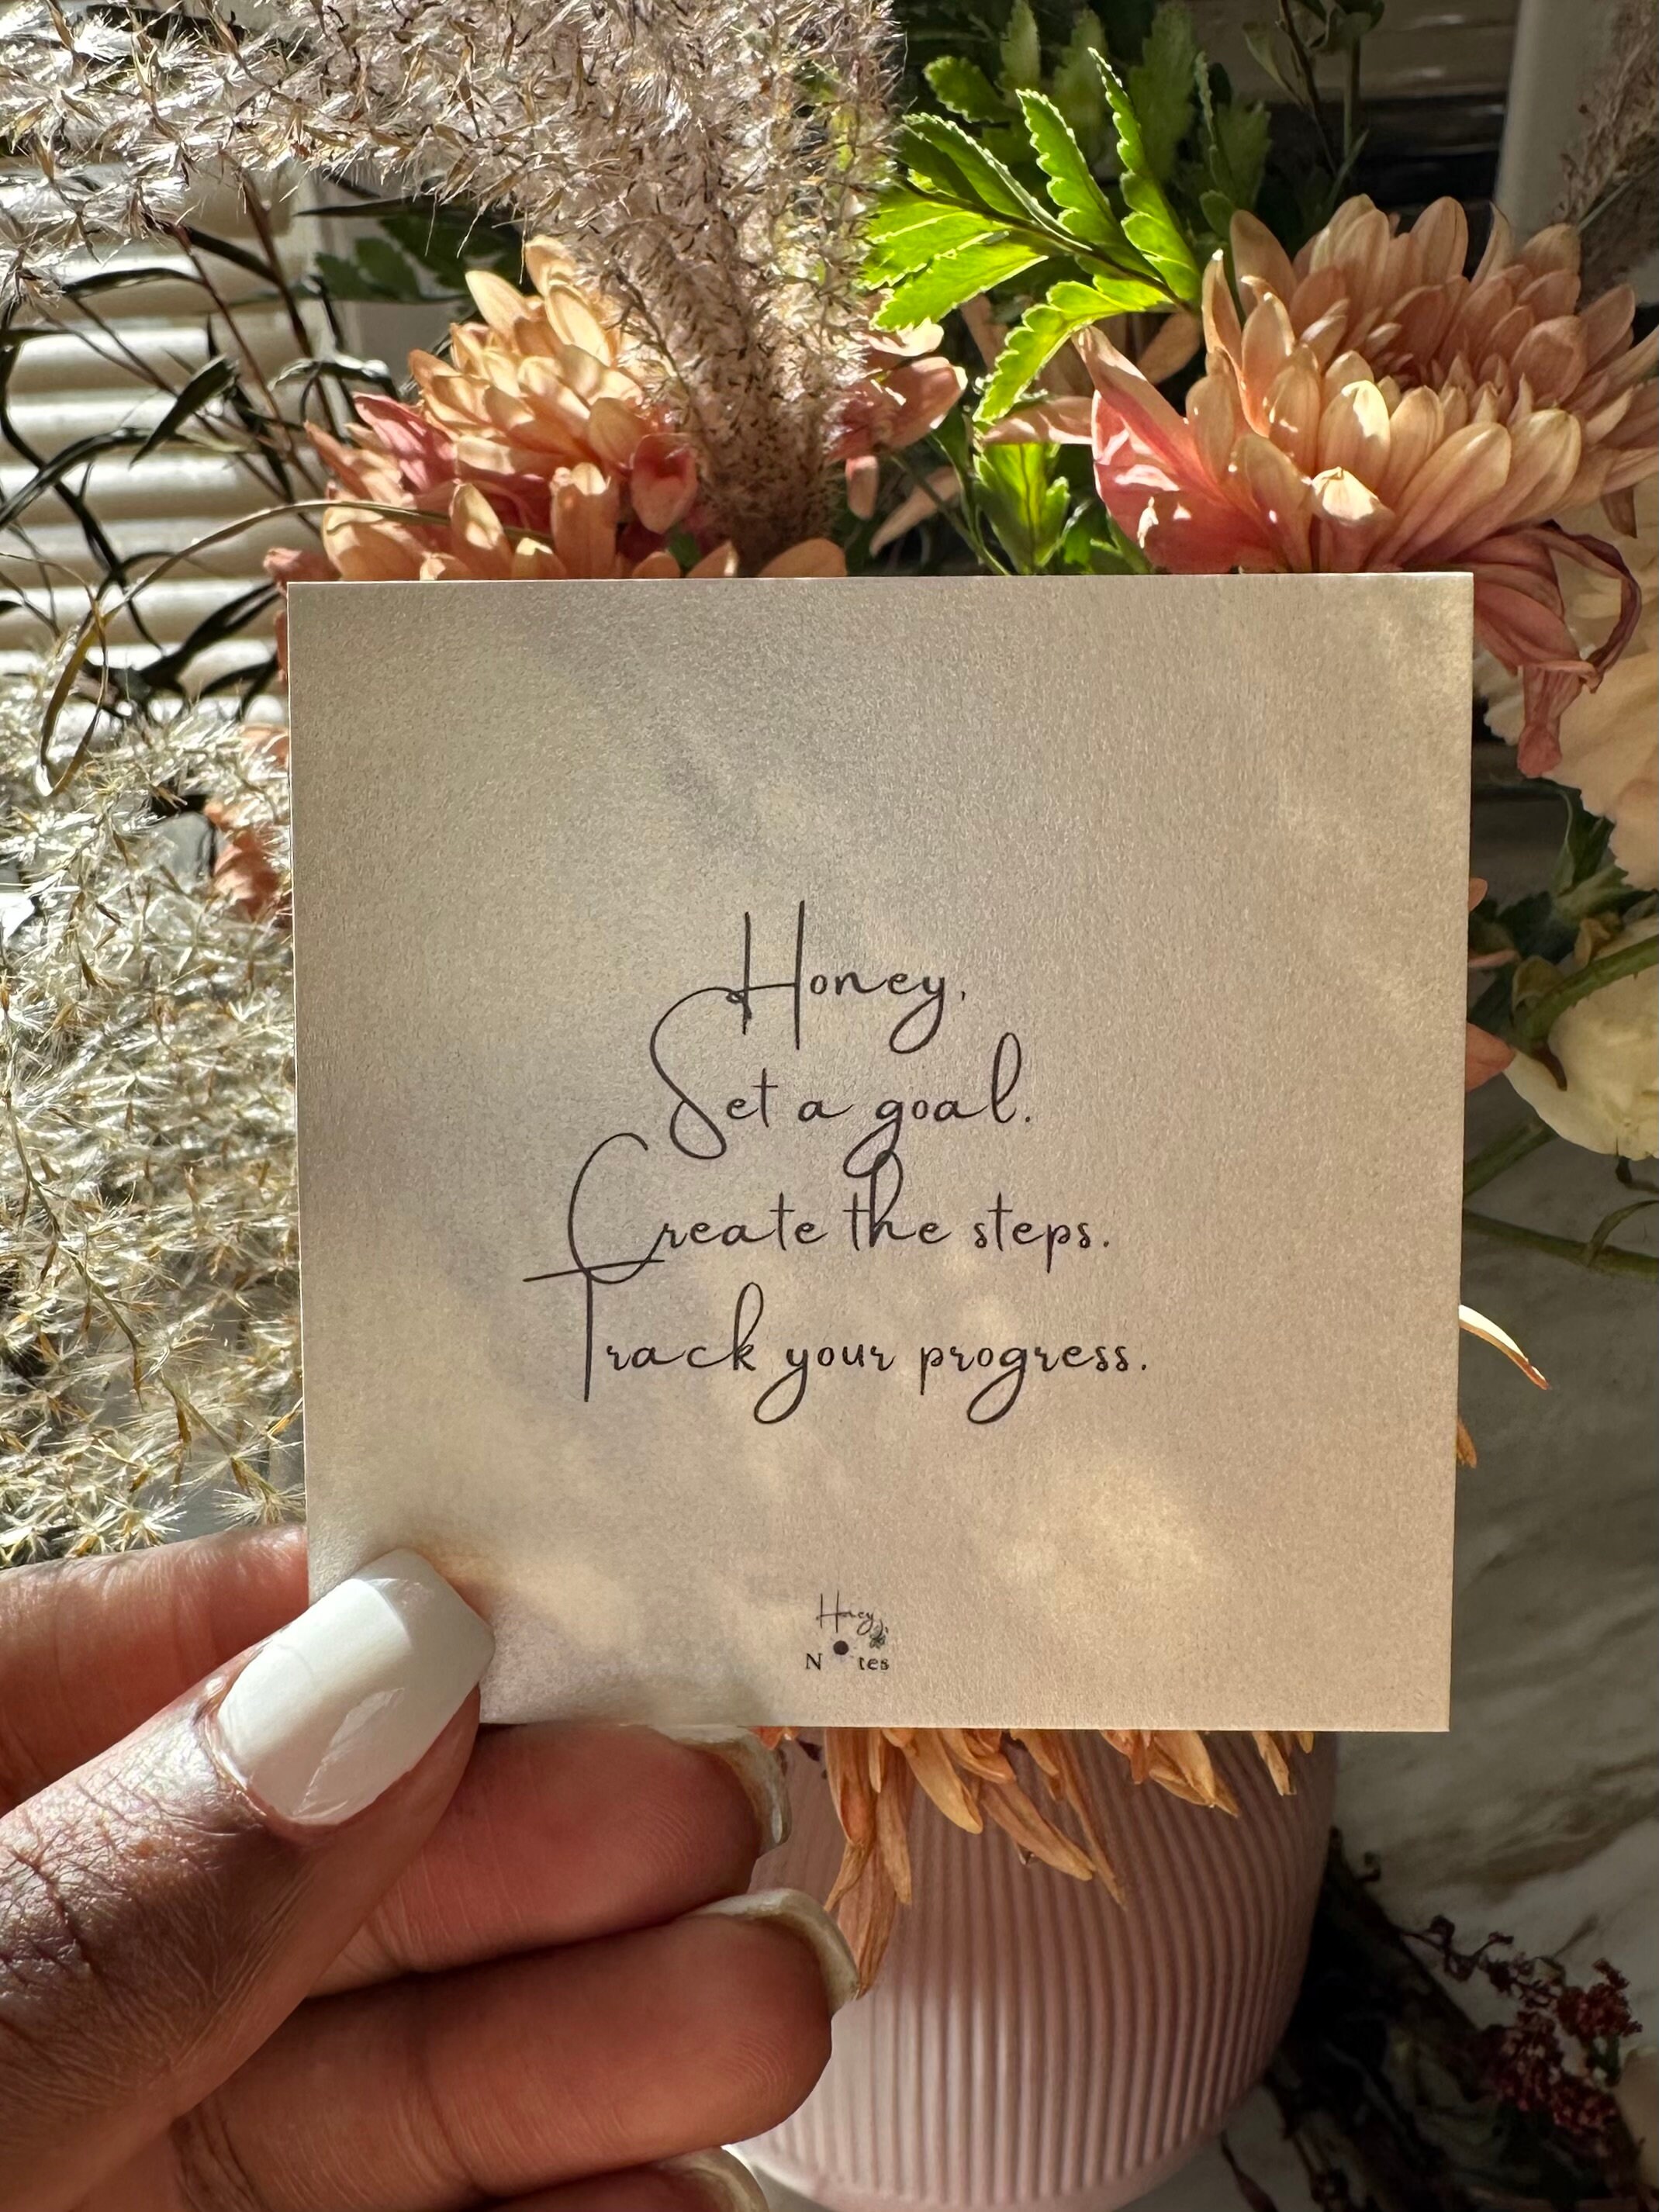 Honey,
Set a goal.
Create the steps.
Track your progress.
Honey,
Notes